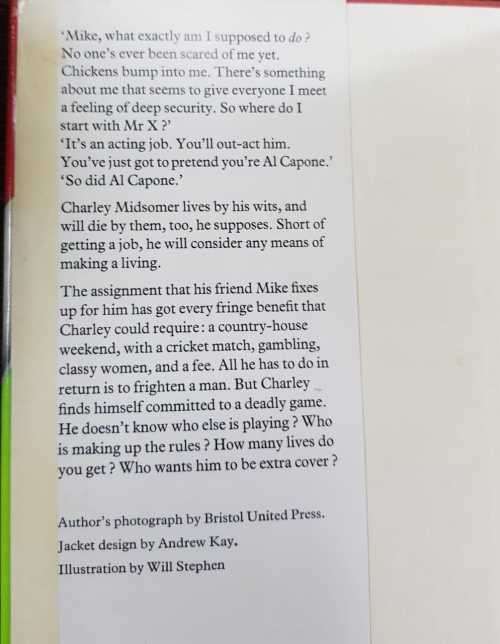 ‘Mike, what exactly am I supposed to do ?
No one’s ever been scared of me yet.
Chickens bump into me. There’s something
about me that seems to give everyone I meet
a feeling of deep security. So where do I
start with Mr X ?’
‘It’s an acting job. You’ll out-act him.
You’ve just got to pretend you’re Al Capone.’
‘So did Al Capone.’
Charley Midsomer lives by his wits, and
will die by them, too, he supposes. Short of
getting a job, he will consider any means of
making a living.
The assignment that his friend Mike fixes
up for him has got every fringe benefit that
Charley could require : a country-house
weekend, with a cricket match, gambling,
classy women, and a fee. All he has to do in
return is to frighten a man. But Charley
finds himself committed to a deadly game.
He doesn’t know who else is playing ? Who
is making up the rules ? How many lives do
you get ? Who wants him to be extra cover ?
Author’s photograph by Bristol United Press.
Jacket design by Andrew Kay.
Illustration by Will Stephen